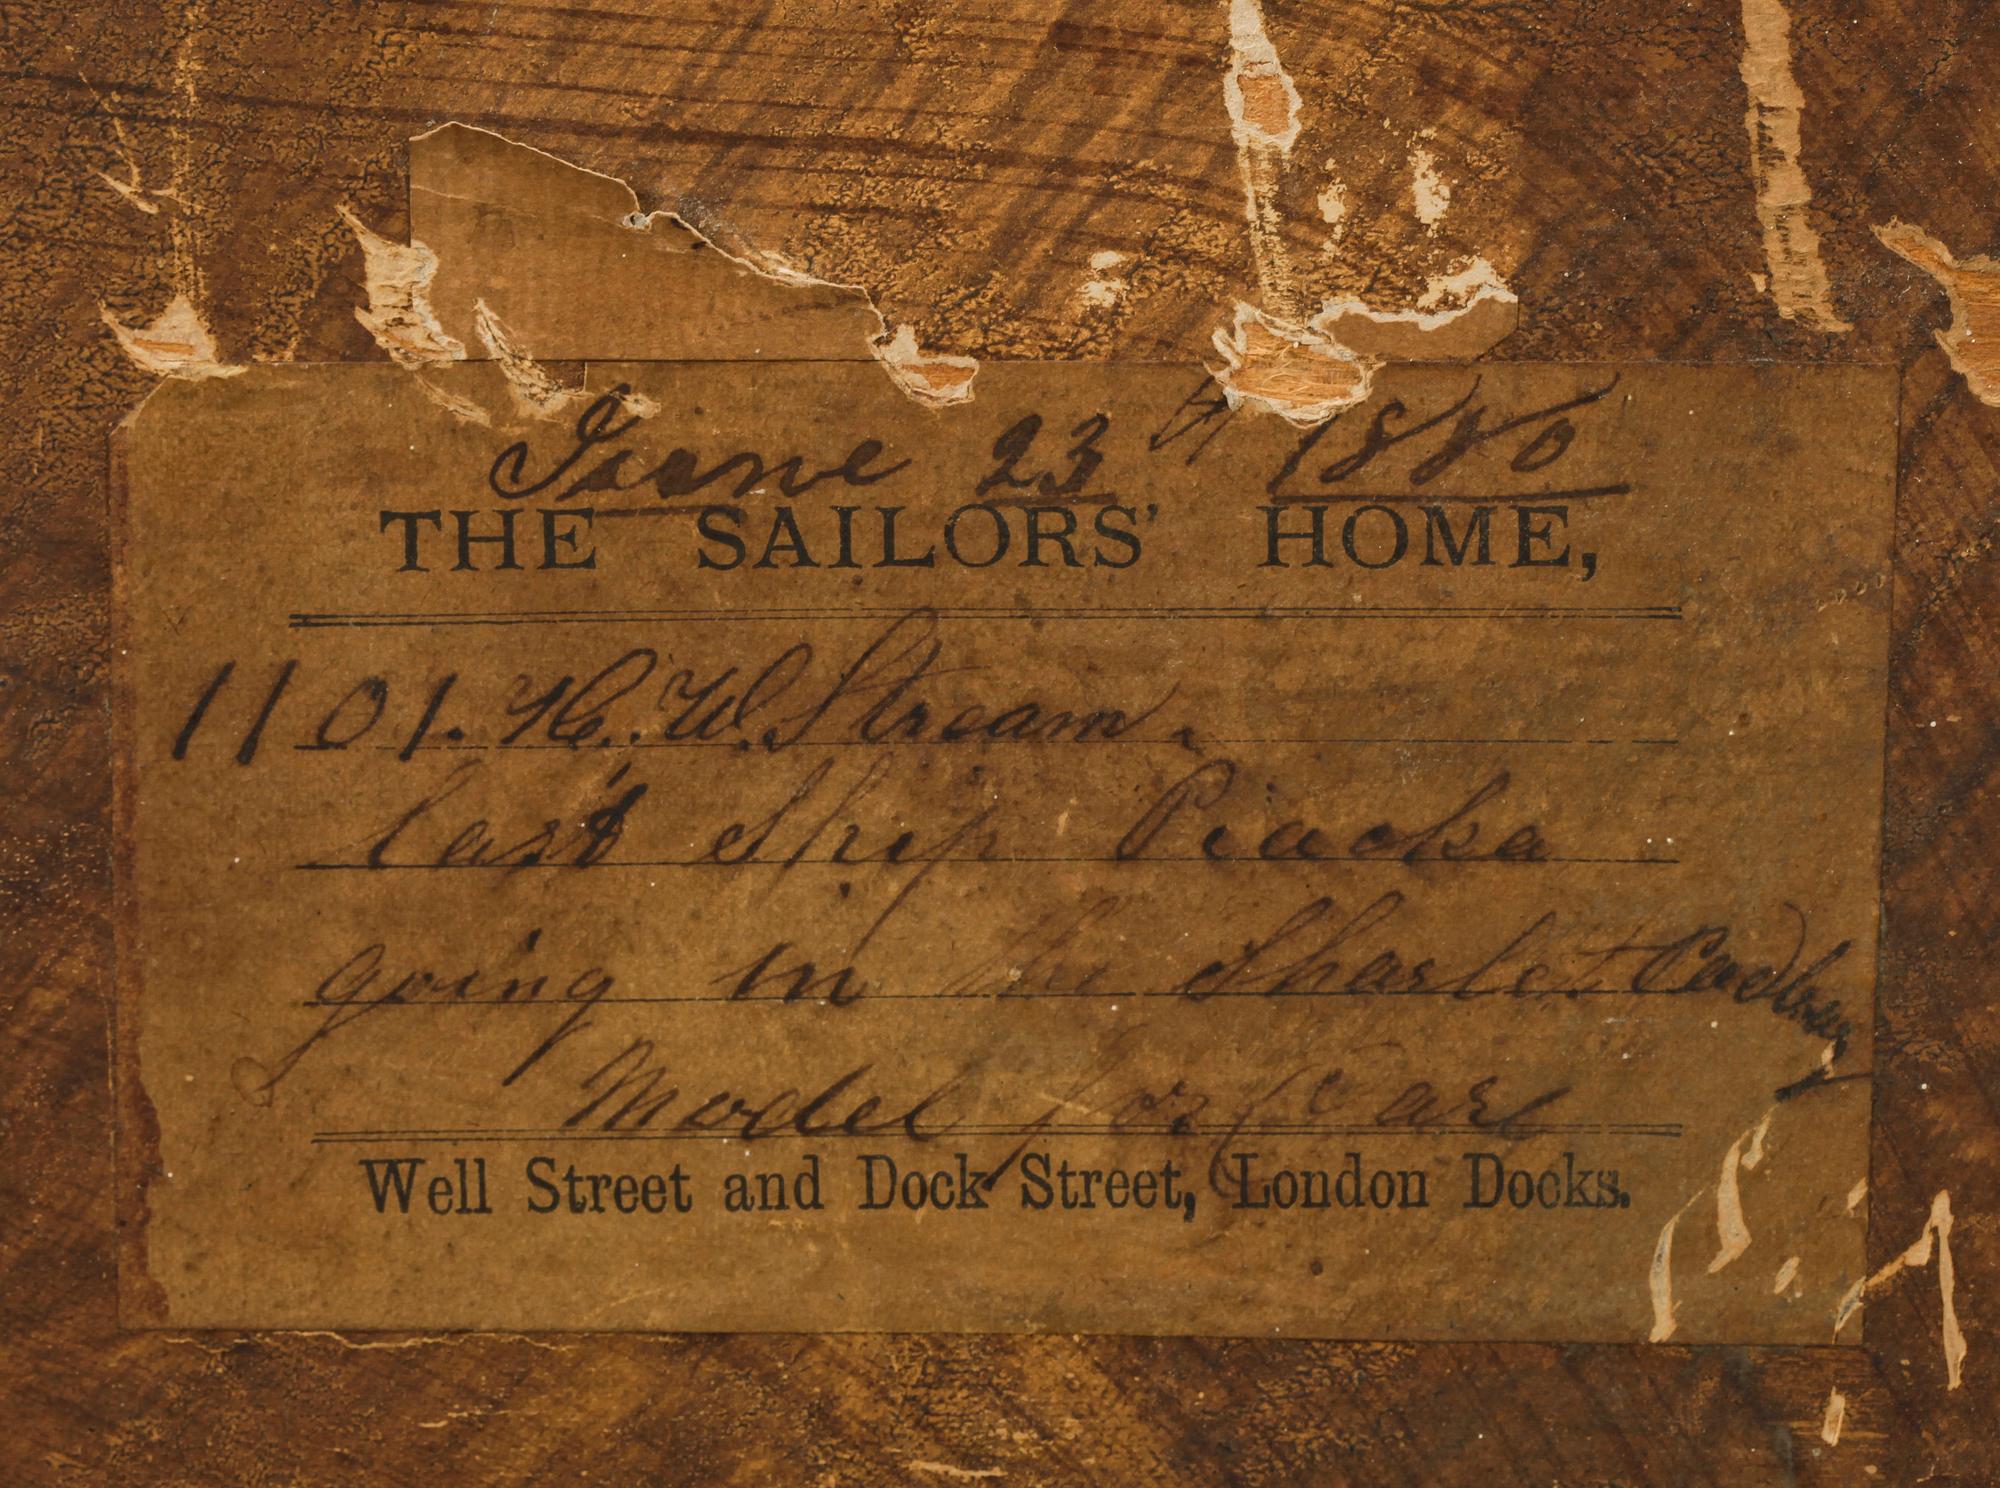 June 23rd 1880
THE SAILORS' HOME,
1101. H. W. Stream.
last ship Piacka
going in the Sharlet Padbury
Model for Care
Well Street and Dock Street, London Docks.